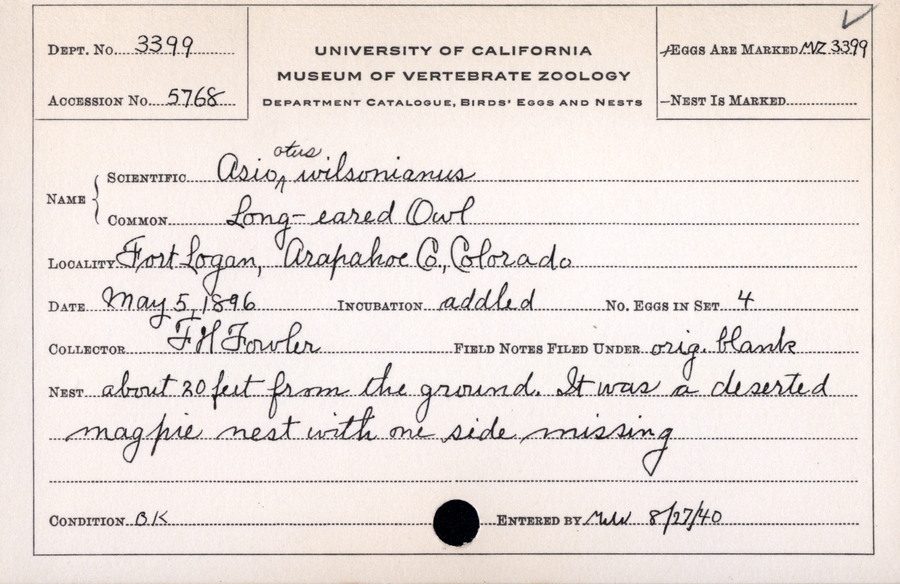 DEPT. No. 3399
ACCESSION No. 5768
UNIVERSITY OF CALIFORNIA
MUSEUM OF VERTEBRATE ZOOLOGY
DEPARTMENT CATALOGUE, BIRDS' EGGS AND NESTS
EGGS ARE MARKED MVZ 3399
NEST IS MARKED
NAME
SCIENTIFIC Asio otus wilsonianus
COMMON Long-eared Owl
LOCALITY Fort Logan, Arapahoe Co., Colorado
DATE May 5, 1896 INCUBATION addled No. EGGS IN SET 4
COLLECTOR F H Fowler FIELD NOTES FILED UNDER orig. blank
NEST about 20 feet from the ground. It was a deserted
magpie nest with one side missing
CONDITION OK ENTERED BY 8/27/40